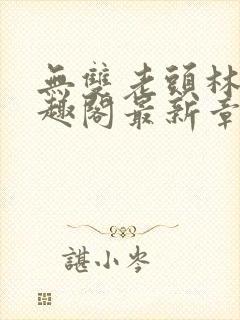 無雙老頭林
趣閣最新章
諶小岑